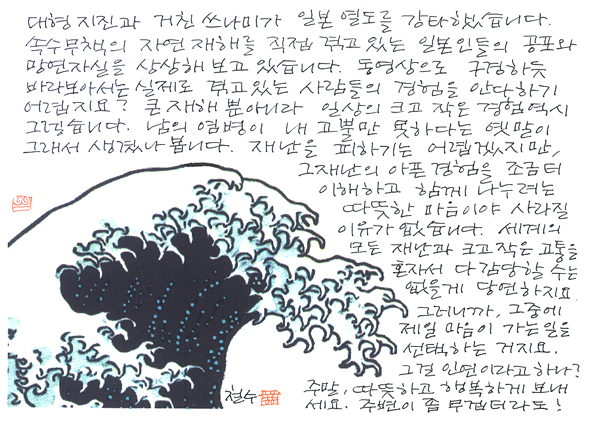 대형 지진과 거친 쓰나미가 일본 열도를 강타했습니다.
속수무책의 자연재해를 직접 겪고 있는 일본인들의 공포와
망연자실을 상상해 보고 있습니다. 동영상으로 구경하듯
바라보아서는 실제로 겪고 있는 사람들의 경험을 안다하기
어렵지요? 큰 재해 뿐아니라 일상의 크고 작은 경험 역시
그렇습니다. 남의 염병이 내 고뿔만 못하다는 옛말이
그래서 생겼나 봅니다. 재난을 피하기는 어렵겠지만,
그 재난의 아픈 경험을 조금 더
이해하고 함께 나누려는
따뜻한 마음이야 사라질
이유가 없습니다. 세계의
모든 재난과 크고 작은 고통을
혼자서 다 감당할 수는
없을게 당연하지요
그러니까, 그중에
제일 마음이 가는 일을
선택하는 거지요.
그걸 인연이라고 하나?
주말, 따뜻하고 행복하게 보내
세요. 주변이 좀 무겁더라도!
철수